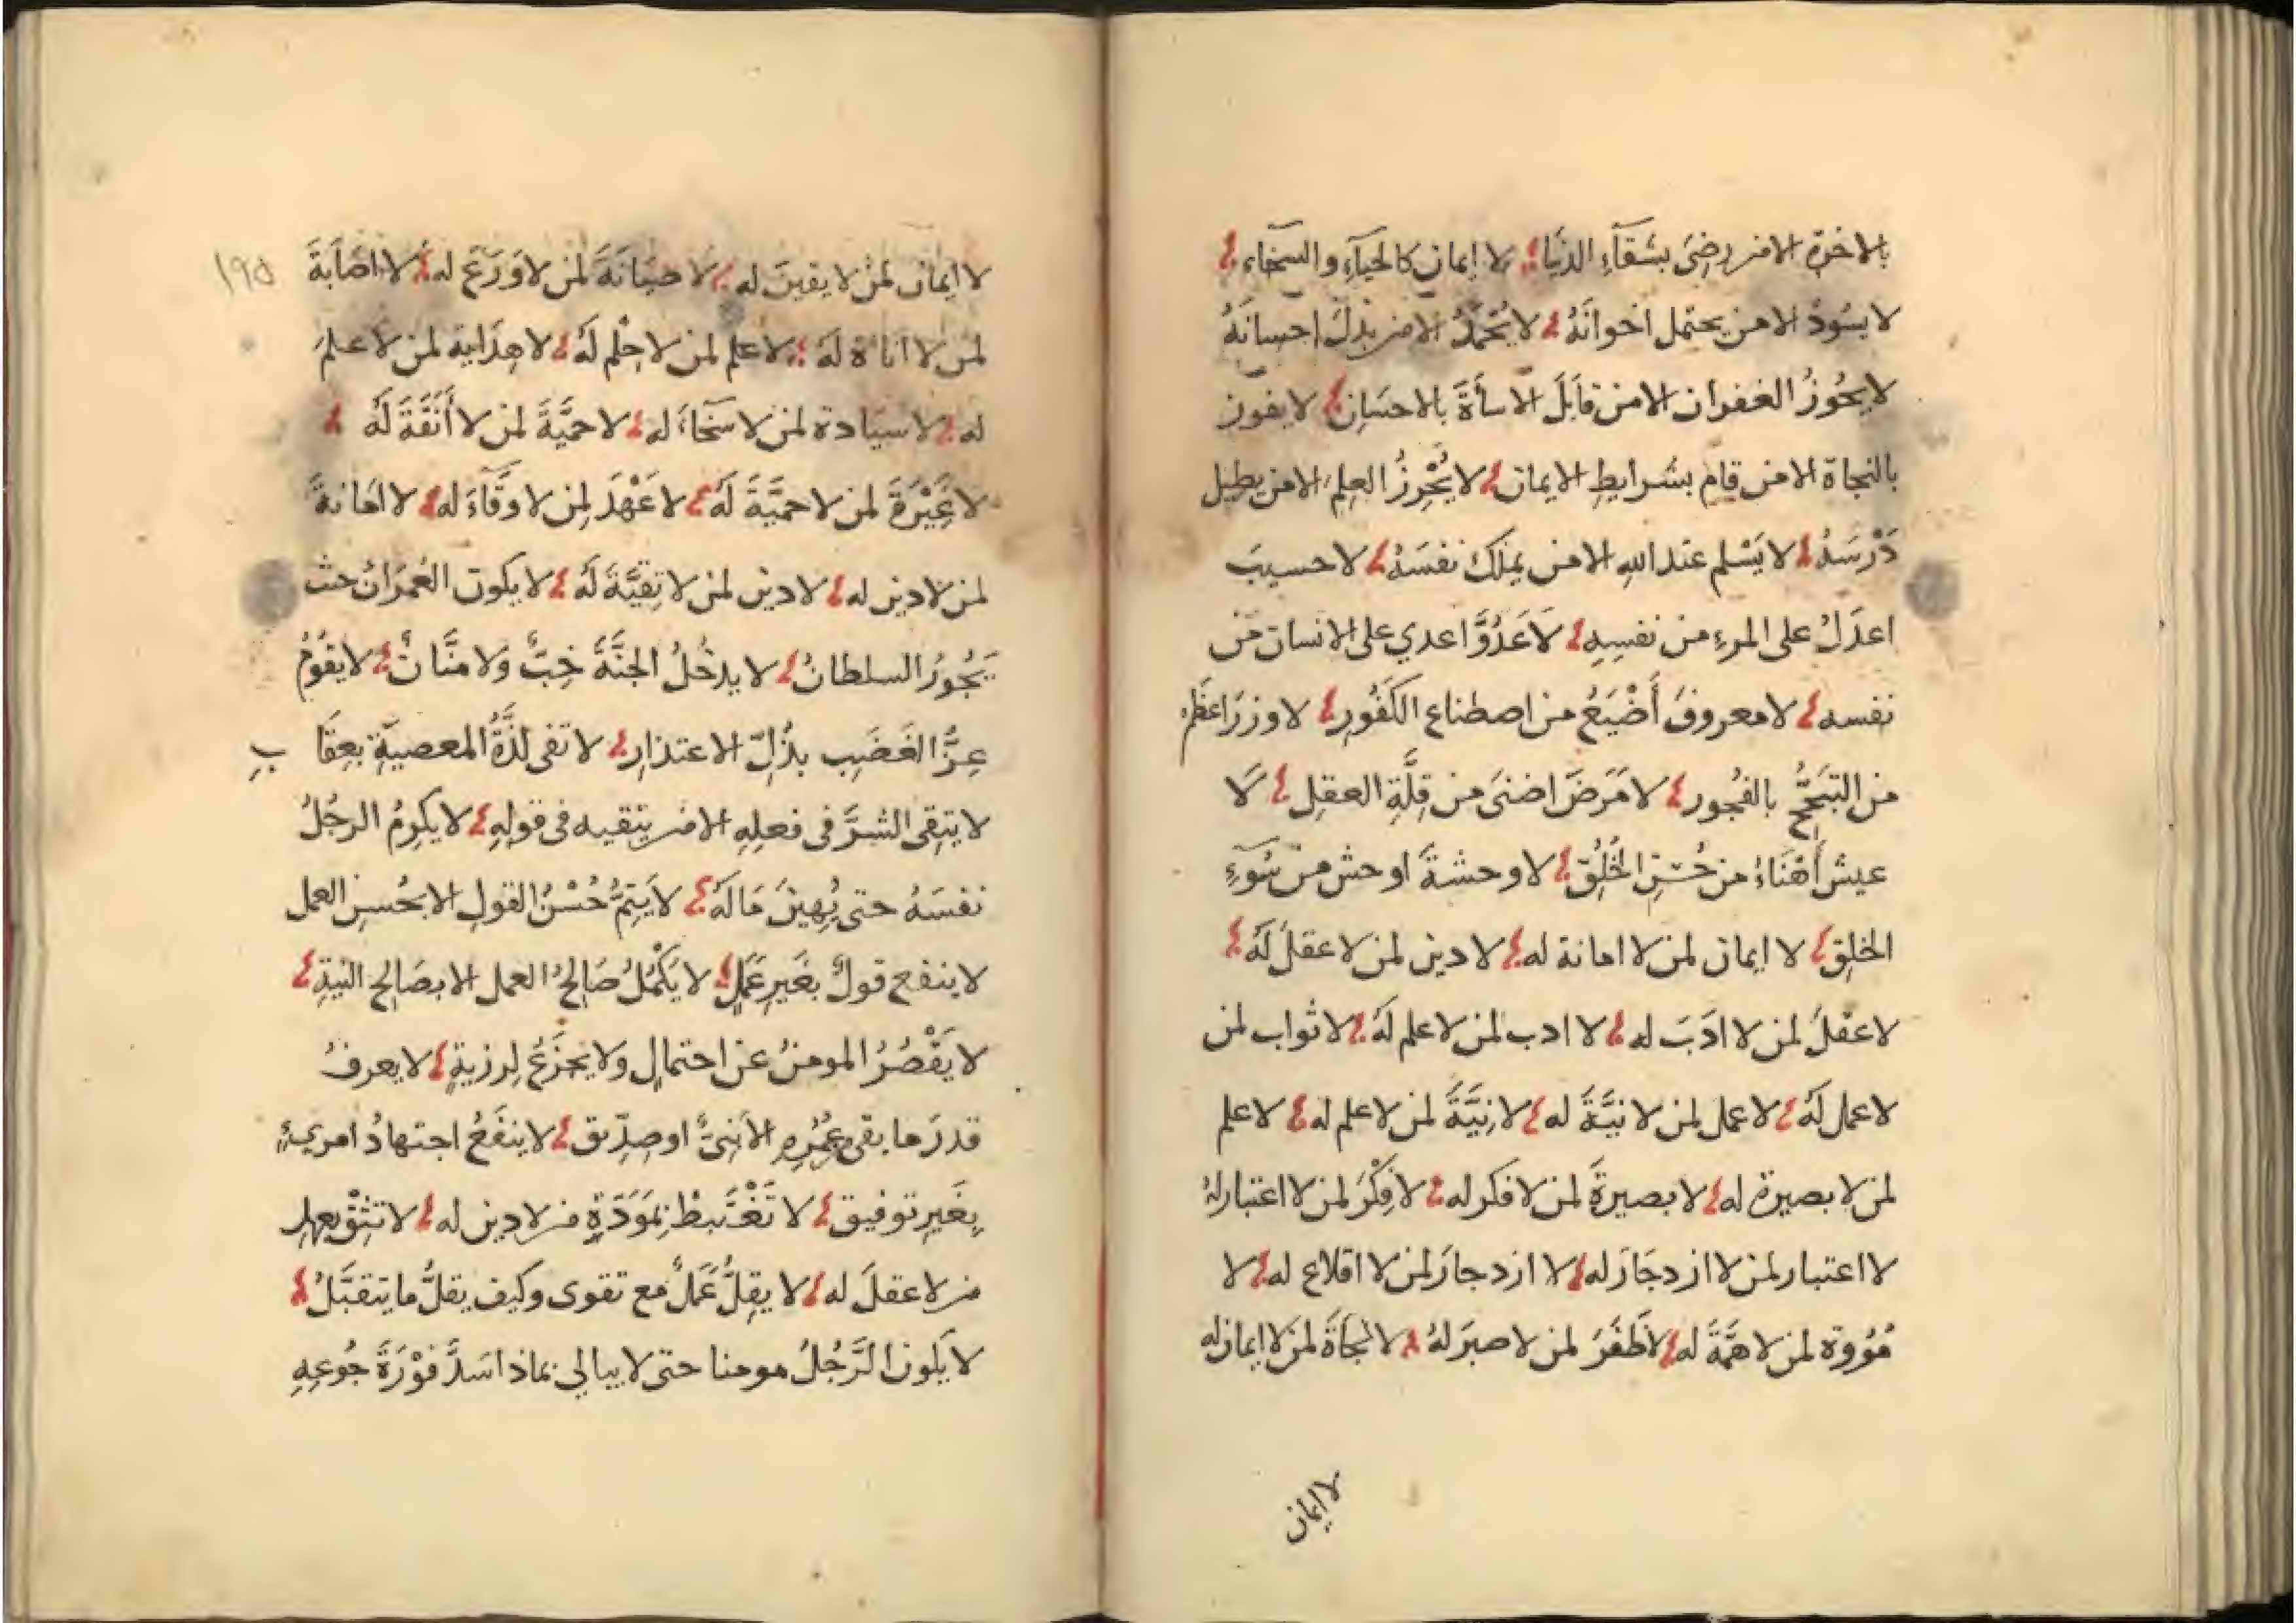 بالاخرة الا من رضي بشقآءِ الدنيا؛ لا إيمان كالحيآءِ والسخآء؛
لا يسُودُ الا من يحتمل اخوانَهُ؛ لا يُحْمَدُ الا من بذلَ احسانَهُ
لا يحُوزُ الغفران الا من قابَلَ الاسأَةَ بالاحسَانِ؛ لا يفوز
بالنجاة الا من قام بشرايطِ الايمان؛ لا يُحْرِزُ العِلمَ الا من يطيل
دَرْسَهُ؛ لا يَسْلم عند اللهِ الا من يملك نفسَهُ؛ لا حسيبَ
اعدَلُ على المرءِ من نفسِهِ؛ لَا عَدُوَّ اعدي على الانسان من
نفسه؛ لا معروفَ أَضْيَعُ من اصطناع الكَفُورِ؛ لا وزرَ اعظم
من التبَجُّح بالفُجور؛ لا مَرَضَ اضنىَ من قِلَّةِ العقلِ؛ لَا
عيش أهْنَاءُ من حُسْنِ الخُلُقِ؛ لا وحشةَ اوحش من سُوءِ
الخلقِ؛ لا ايمان لمن لا امانة له؛ لا دين لمن لا عقلَ لَهُ؛
لا عقلَ لمن لا ادَبَ له؛ لا ادب لمن لا علم لَهُ؛ لا ثواب لمن
لا عمل لَهُ؛ لا عمل لمن لا نيَّةَ له؛ لا نِيَّةَ لمن لا علم له؛ لا علم
لمن لا بصيرة له؛ لا بصيرةَ لمن لا فكر له؛ لا فِكْرَ لمن لا اعتبار لهُ
لا اعتبار لمن لا ازدجَارَ له؛ لا ازدجارَ لمن لا اقلاع له؛ لا
مُرُوة لمن لا همَّةَ له؛ لا ظَفَرَ لمن لا صبرَ لهُ؛ لا نجاةَ لمن لا ايمان له
لا ايمان
١٩٥
لا ايمان لمن لا يقينَ له؛ لا صيَانَةَ لمن لا وَرَعَ له؛ لا اصَابةَ
لمن لا اناة لَهُ؛ لا علم لمن لا حِلْم لَهُ؛ لا هِدَاية لمن لا علمَ
له؛ لا سيَادة لمن لا سخَاءَ له؛ لا حميَّةَ لمن لا أَنَفَةَ لَهُ؛
لا غَيْرَةَ لمن لا حميَّةَ لَهُ؛ لا عَهْدَ لِمن لا وفَآءَ له؛ لا امَانةَ
لمن لا دين له؛ لا دين لمن لا تقيَّةَ لَهُ؛ لا يكون العُمرَانُ حيث
يَجُورُ السلطانُ؛ لا يدخُلُ الجنَّةَ خِبٌّ وَلا منَّانٌ؛ لا يقُومُ
عِزُّ الغَضَبِ بذُلِّ الاعتذارِ؛ لا تفى لذَّةُ المعصيَةِ بعِقَابِ
لا يتقى الشرَّ فى فعلهِ الا من يتقيه فى قولِهِ؛ لا يكرِمُ الرجُلُ
نفسَهُ حتى يُهينَ مَالَهُ؛ لا يَتِمُّ حُسْنُ القولِ الا بحُسنِ العمل
لا ينفع قولٌ بغَيرِ عَمَلٍ؛ لا يَكْمُلُ صَالِحُ العمل الا بصَالِحِ النيةِ؛
لا يَقْصُرُ المومنُ عن احتمالٍ ولا يجزَعُ لِرزيةٍ؛ لا يعرفُ
قدرَ ما بقى من عُمْرِهِ الا نبىٌّ او صِدّيق؛ لا ينفَعُ اجتهادُ امرىءٍ
بِغَيرِ توفيق؛ لا تَغْتَبِطْ بمَوَدّةِ من لا دين له؛ لا تثِقْ بعهدِ
من لا عقلَ له؛ لا يقِلُّ عَمَلٌ مع تقوى وكيف يقلُّ ما يتقبَّلُ؛
لا يكون الرَّجُلُ مومنا حتى لا يبالى بماذا سَدَّ فَوْرَةَ جُوعِهِ